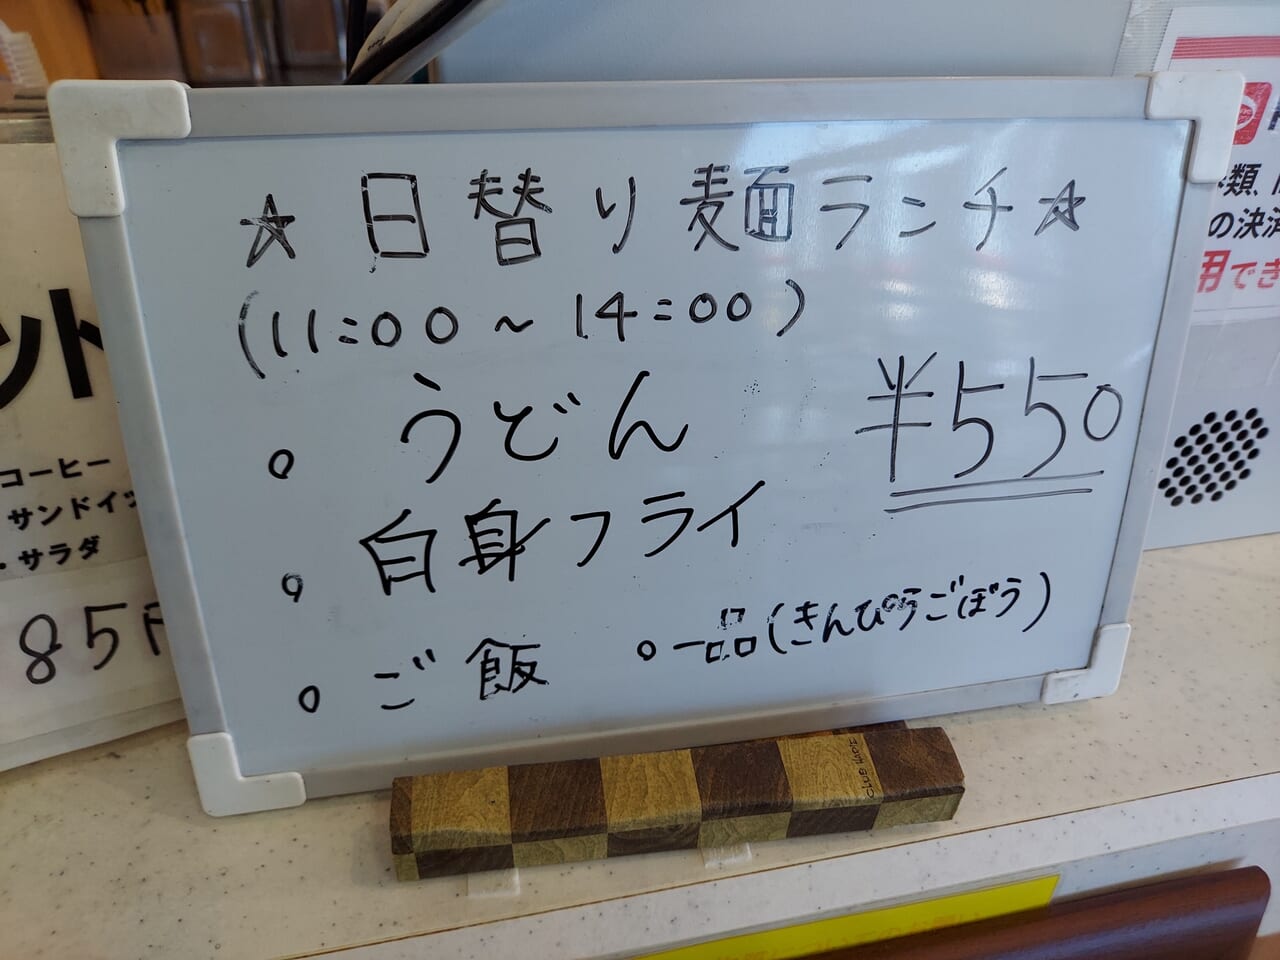 ☆日替り麺ランチ☆
(11:00～14:00)
。うどん
¥550
。白身フライ
。ご飯 。一品(きんぴらごぼう)
ット
コーヒー
サンドイッ
・サラダ
85円
類、
の決済
用でき